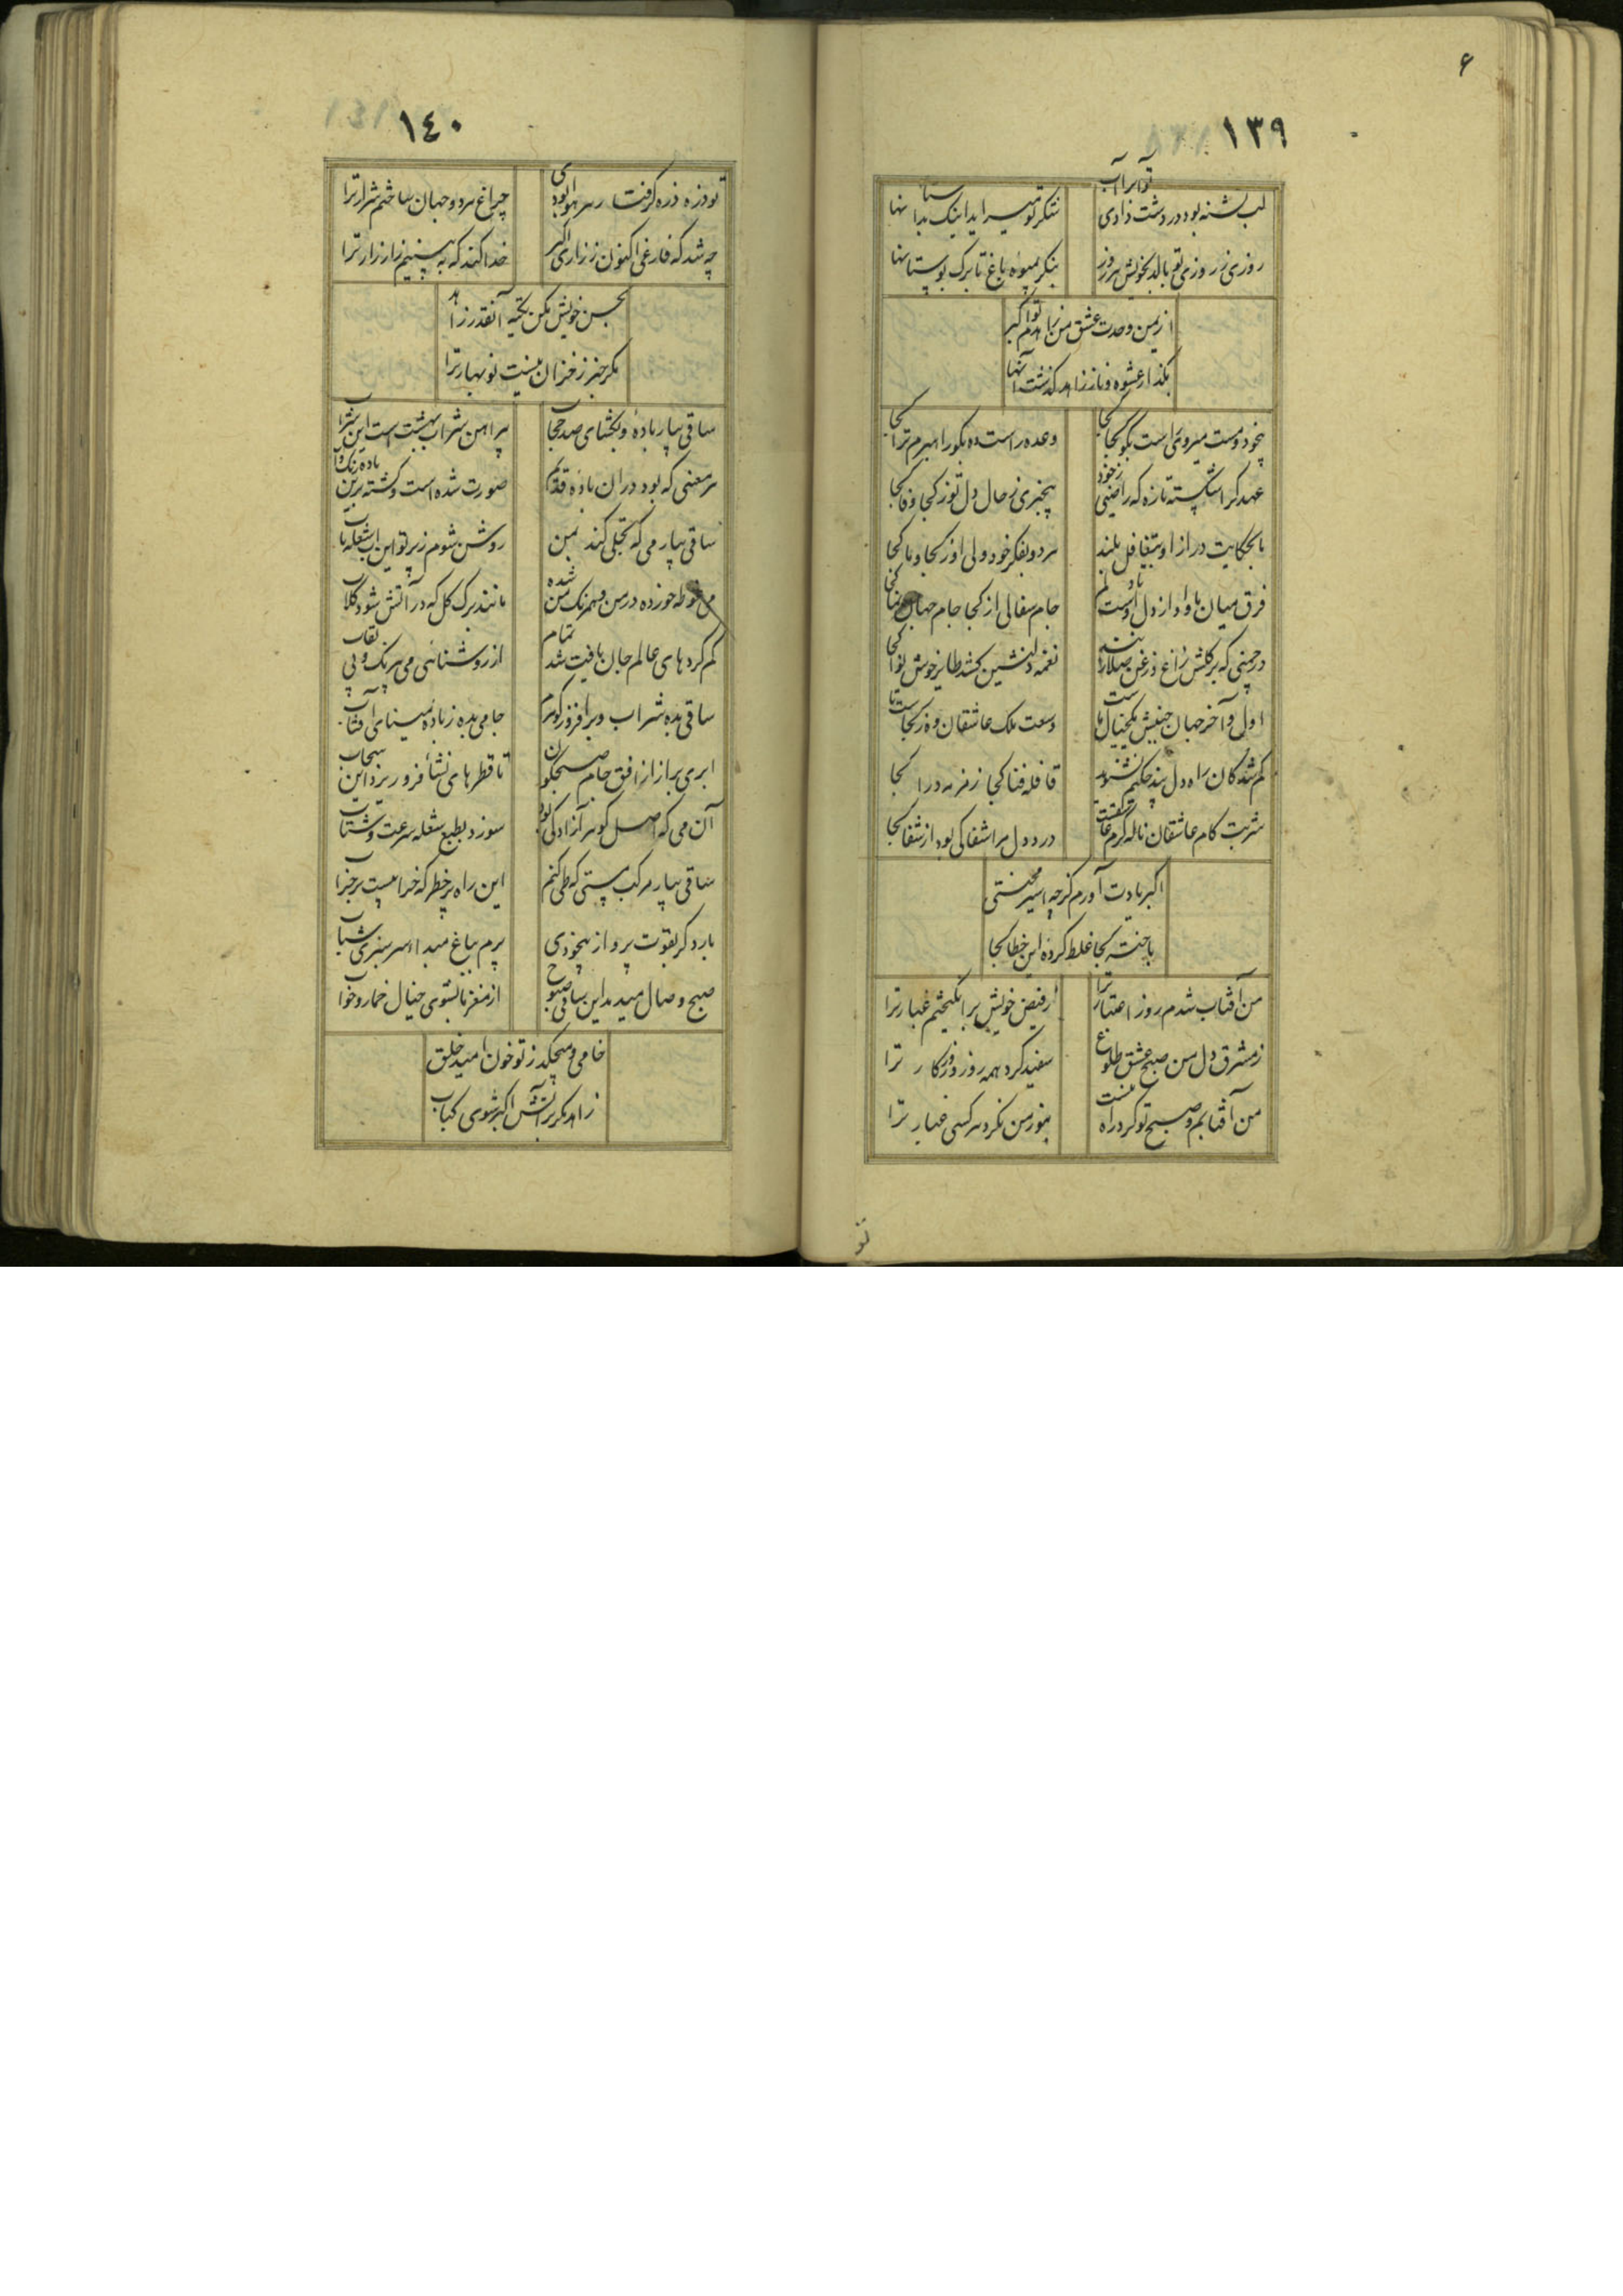 ۶
۱۳۹
لب تشنه بود در دشت زادی تو ابر آب
بنگر بمیوه باغ تا برگ بوستانها
از یمن وحدت عشق من زاهدم تو اکبر
بگذار عشوه و ناز زاهد گذشت آنها
بیخود و مست میروی راست بگو کجا کجا
وعده راست ده بگو راهبرم ترا کجا
عهد کرا شکسته تازه که راضیی ز خود
بیخبری ز حال دل تو ز کجا وفا کجا
ما بحکایت دراز او بتغافل بلند
هر دو بفکر خود ولی او ز کجا و ما کجا
فرق میان ما و او از دل او دلم
جام سفالی از کجا جام جهان نما کجا
نغمه دلنشین کشد طایر خوش نوا کجا
وسعت ملک عاشقان
گم شدگان راه دل پند حکیم نشنوند
قافله فنا کجا زمزمه درا کجا
شربت کام عاشقان ناله گرم
درد دل مرا شفا کی بود از شفا کجا
اکبر یادت آورم گرچه اسیر محنتی
با جنت کجا غلط کرده این خطا کجا
من آفتاب شدم روز اعتبار ترا
ز فیض خویش برانگیختم غبار ترا
ز مشرق دل من صبح عشق طلوع
سفید کرد همه روز روزگار ترا
من آفتابم و صبح تو گرد راه منست
هنوز من نکرد هر کسی غبار ترا
تو
۱۴۰
تو ذره ذره گرفتار هر هوا بودی
چراغ هر دو جهان ساختم شرار ترا
چه شد که فارغی اکنون ز زاری اکبر
خدا کند که ببینیم زار زار ترا
بحسن خویش مکن تکیه آنقدر زاهد
مگر خبر ز خزان نیست نوبهار ترا
ساقی بیار باده و بگشای صد حجاب
پیراهن شراب بهشت است این شراب
هر معنی که بود در آن باده قدیم
صورت شده است و گشته برین باده رنگ و آب
ساقی بیار می که تجلی کند بمن
روشن شوم ز پرتو این شعله ناب
می غوطه خورده در من و همرنگ من شده
مانند برگ گل که در آتش شود گلاب
گم کرده‌های عالم جان یافت شد تمام
از روشنائی می بیرنگ و بی نقاب
ساقی بده شراب و برافروز گوهرم
جامی بده ز باده مینای آفتاب
ابری برآر از افق جام صبحگون
تا قطره‌های نشأ فرو ریزد این سحاب
آن می که اصل گوهر آزادگی بود
سوزد بطبع شعله سرعت و شتاب
ساقی بیار مرکب مستی که طی کنم
این راه پر خطر که خرابیست بر خراب
بار دگر بقوت پرواز بیخودی
پرم بباغ مبدأ سرسبزی شباب
صبح وصال میدمد این ساقی صبوح
از مغز ما بشوی خیال خمار و خواب
خامی و میچکد ز تو خون امید خلق
زاهد مگر بر آتش اکبر شوی کباب